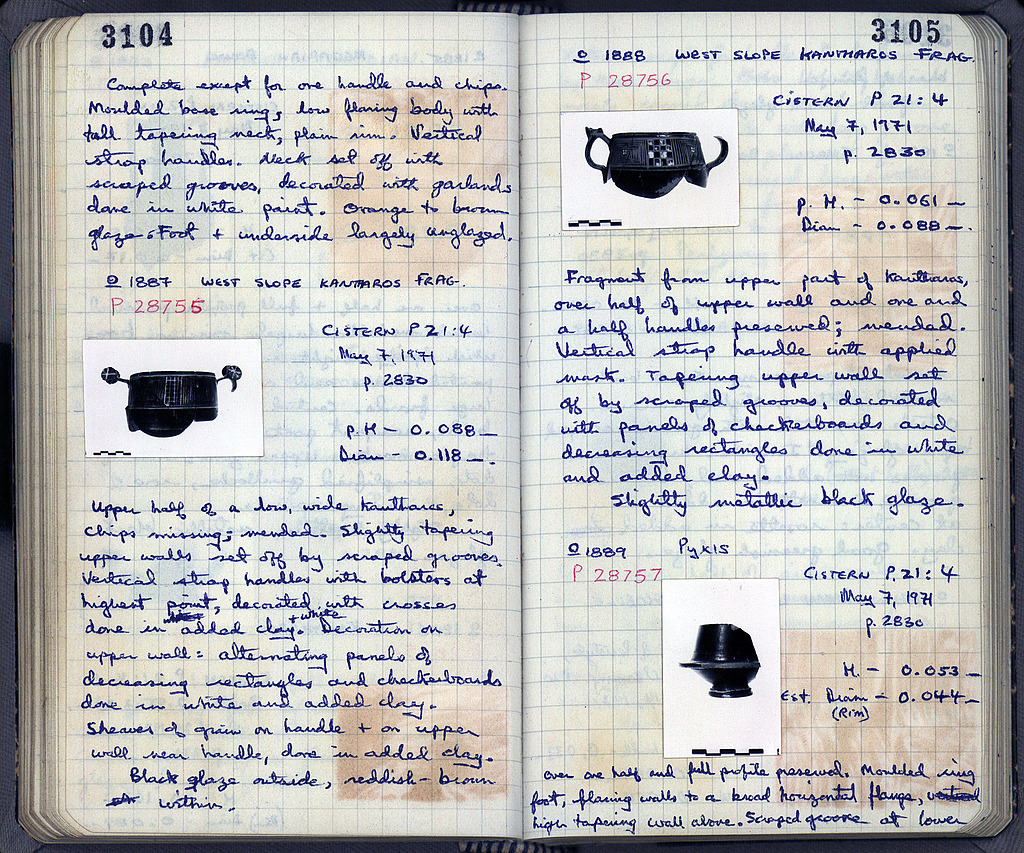 3104
Complete except for one handle and chips.
Moulded base ring, low flaring body with
tall tapering neck, plain rim. Vertical
strap handles. Neck set off with
scraped grooves, decorated with garlands
done in white paint. Orange to brown
glaze. Foot + underside largely unglazed.
O 1887 WEST SLOPE KANTHAROS FRAG.
P 28755
CISTERN P 21:4
May 7, 1971
p. 2830
p.H - 0.088 —
Diam - 0.118 —.
Upper half of a low, wide kantharos,
chips missing; mended. Slightly tapering
upper walls set off by scraped grooves.
Vertical strap handles with bolsters at
highest point, decorated with crosses
done in added clay + white. Decoration on
upper wall: alternating panels of
decreasing rectangles and checkerboards
done in white and added clay.
Sheaves of grain on handle + on upper
wall near handle, done in added clay.
Black glaze outside, reddish-brown
within.
3105
O 1888 WEST SLOPE KANTHAROS FRAG.
P 28756
CISTERN P 21:4
May 7, 1971
p. 2830
p. H. - 0.061 —
Diam - 0.088 —.
Fragment from upper part of kantharos,
over half of upper wall and one and
a half handles preserved; mended.
Vertical strap handle with applied
mask. Tapering upper wall set
off by scraped grooves, decorated
with panels of checkerboards and
decreasing rectangles done in white
and added clay.
Slightly metallic black glaze.
O 1889 PYXIS
P 28757
CISTERN P. 21:4
May 7, 1971
p. 2830
H. - 0.053 —
Est. Diam - 0.044 —
(Rim)
over one half and full profile preserved. Moulded ring
foot, flaring walls to a broad horizontal flange, vertical
high tapering wall above. Scraped groove at lower